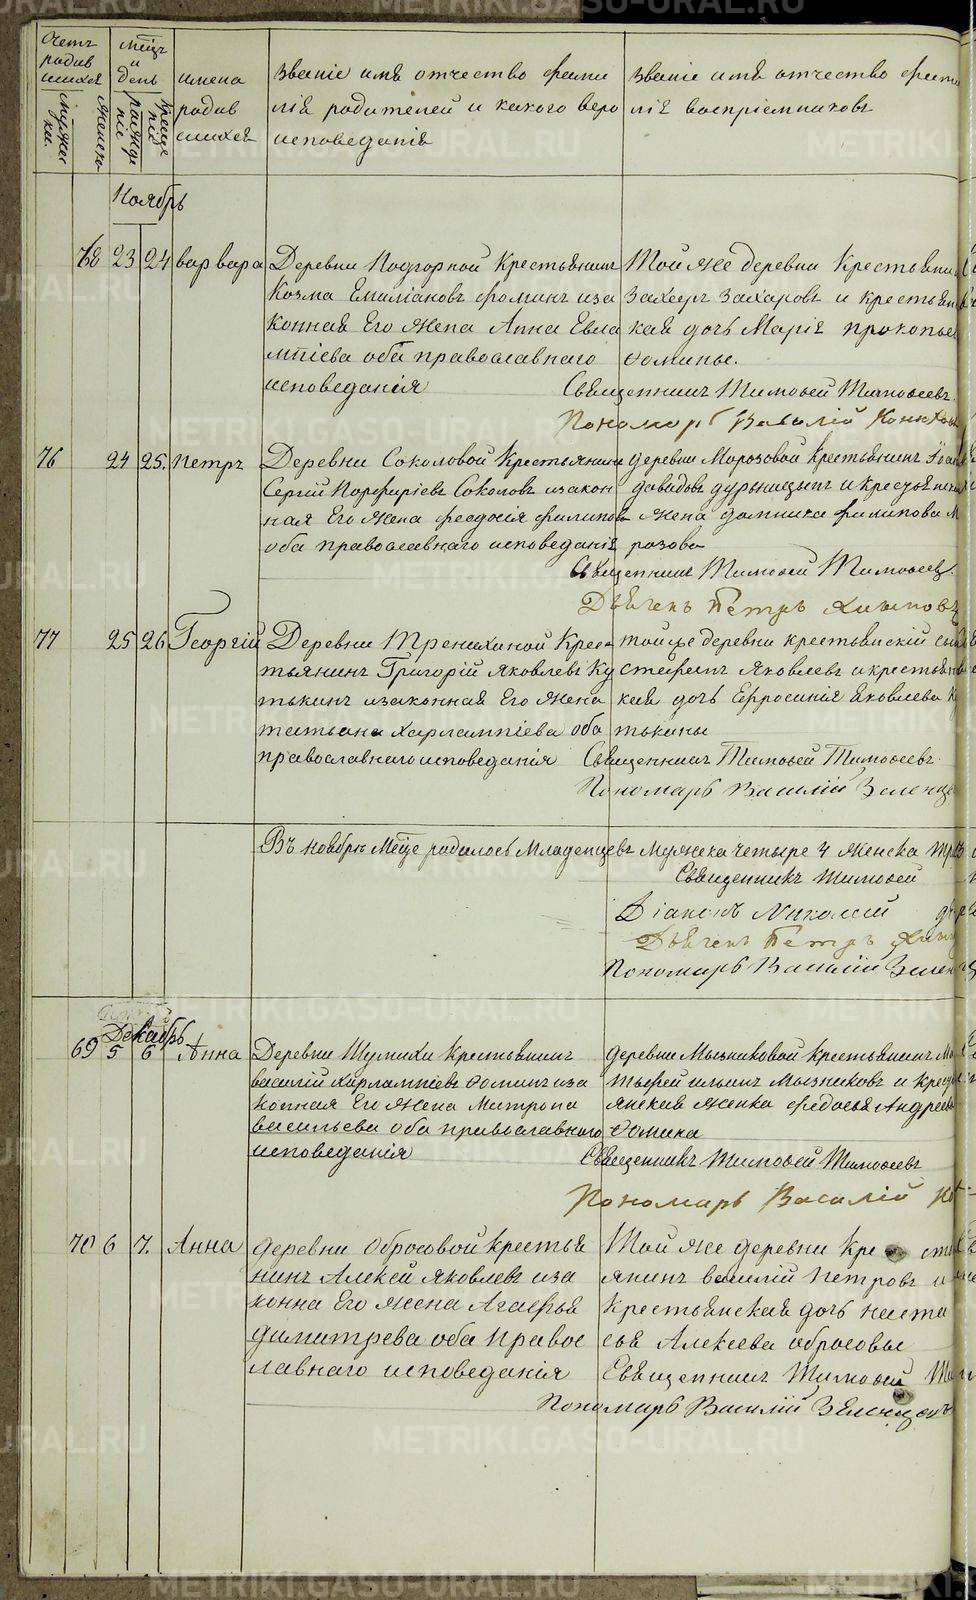 Счетъ родив шихся
Мѣсцъ и день
имена родив шихся
Званіе имя отчество фами
лія родителей и какого веро
исповеданія
Званіе имя отчество фами
лія воспріемниковъ
Ноябрь
68 23 24 варвара
Деревни Подгорной Крестьянинъ
Козма Емиліановъ Фоминъ иза
конная Его жена Анна Евла
мпіева оба православнаго
исповеданія
Той же деревни Крестьянинъ
Захаръ Захаровъ и крестьян
кая дочь Марія прокопье
Фомины.
Священникъ Тимофей Тимофеевъ
Пономарь Василій
76 24 25. Петръ
Деревни Соколовой Крестьянинъ
Сергій Порфиріевъ Соколовъ изакон
ная Его жена феодосія филипов
оба православнаго исповеданія
деревни Морозовой Крестьянинъ
давидовъ дурницынъ и крестьянска
жена домника филипова М
розова
Священникъ Тимофей Тимофеев.
Дьячекъ Петръ
77 25 26 Георгій
Деревни Тренихиной Крес
тьянинъ Григорій Яковлевъ Ку
тькинъ изаконная Его жена
татьяна харлампіева оба
православнаго исповеданія
тойже деревни крестьянскій сы
стефанъ Яковлевъ икрестьян
кая дочь Ефросинія Яковлева К
тькины
Священникъ Тимофей Тимофеевъ.
Пономарь Василій Зеленце
Въ ноябрѣ Мѣсце родилось Младенцевъ Мужеска четыре 4 женска три
Священникъ Тимофей
Діаконъ Николай
Дьячекъ Петръ
Пономарь Василій Зелен
Декабрь
69 5 6 Анна
Деревни Шумихи Крестьянинъ
василій харлампіевъ Фоминъ иза
конная Его жена Митропа
васильева оба православнаго
исповеданія
деревни Мызниковой Крестьянинъ Ма
твей ильинъ Мызниковъ и Крест
янская женка федосья Андреева
Фомина
Священникъ Тимофей Тимофеевъ
Пономарь Василій
70 6 7. Анна
деревни Обросовой крестья
нинъ Алексей Яковлевъ иза
конна Его жена Агафья
димитрева оба Правос
лавнаго исповеданія
Той же деревни Кре сть
янинъ василій петровъ и
Крестьянская дочь наста
сья Алексева обросовы
Священникъ Тимофей Ти
Пономарь Василій Зеленцовъ
METRIKI.GASO-URAL.RU